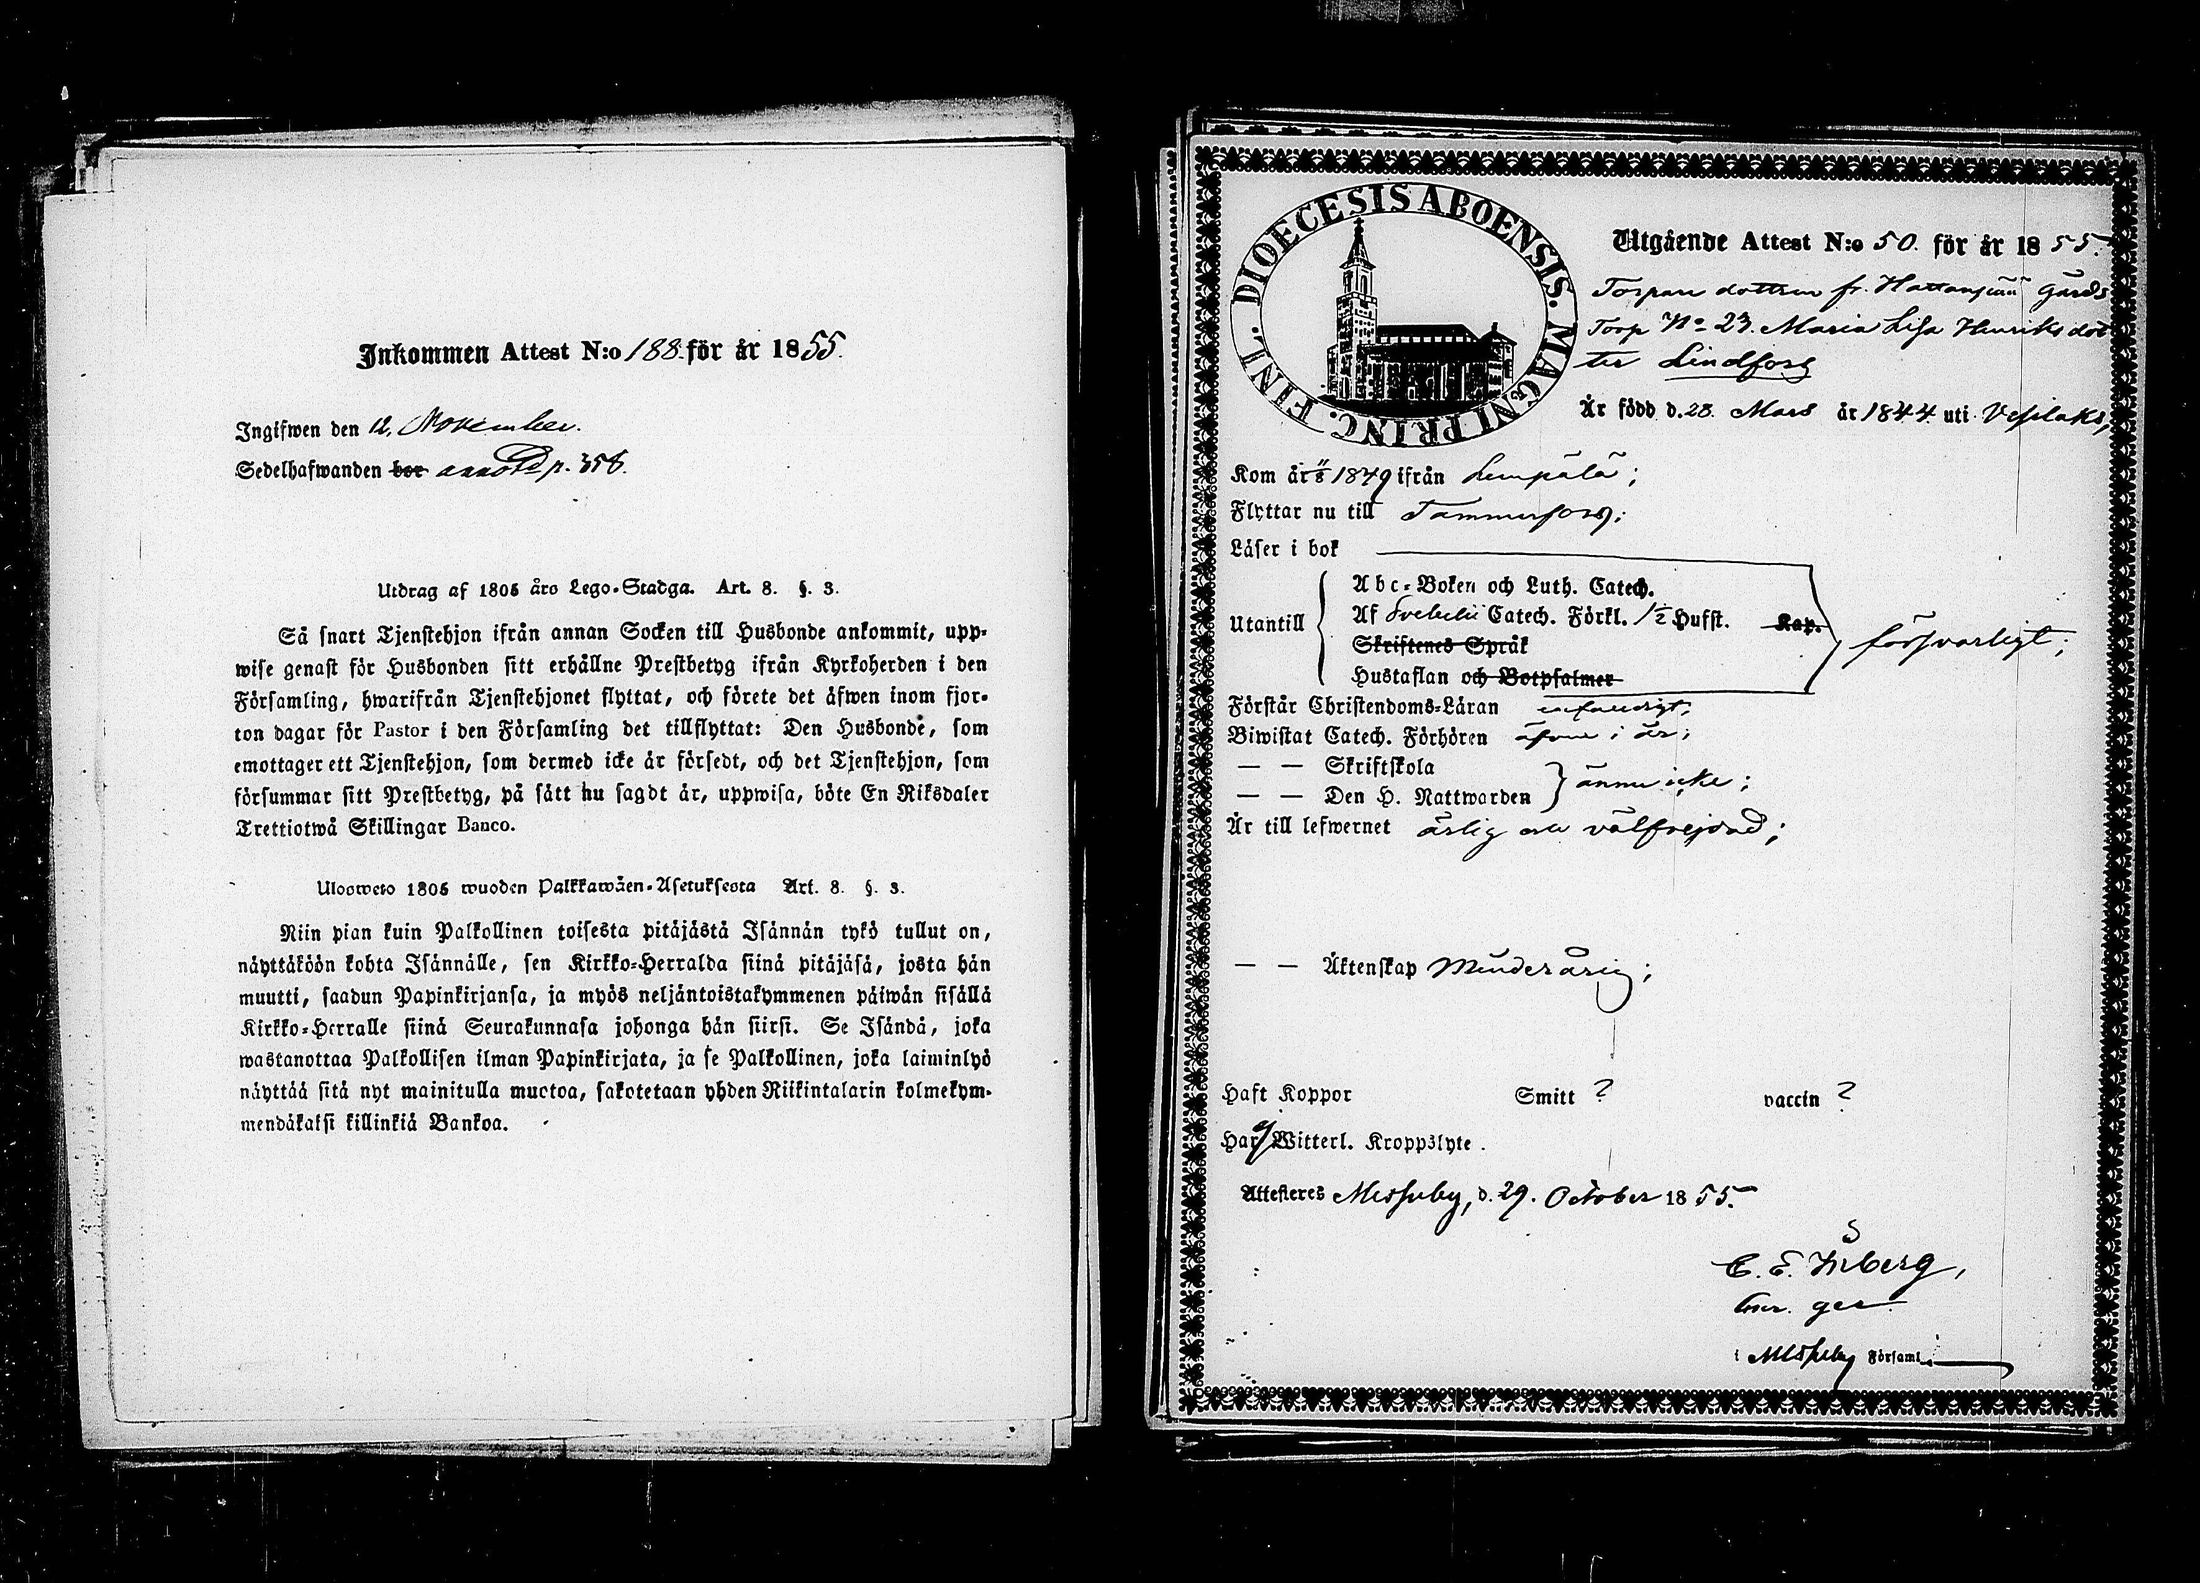 Inkommen Attest N:o 188. för år 1855.
Ingifwen den 12. November.
Sedelhafwanden bor annotd p. 358.
Utdrag af 1805 års Lego-Stadga. Art. 8. §. 3.
Så snart Tjenstehjon ifrån annan Socken till Husbonde ankommit, upp-
wise genast för Husbonden sitt erhållne Prestbetyg ifrån Kyrkoherden i den
Församling, hwarifrån Tjenstehjonet flyttat, och förete det äfwen inom fjor-
ton dagar för Pastor i den Församling det tillflyttat: Den Husbonde, som
emottager ett Tjenstehjon, som dermed icke är försedt, och det Tjenstehjon, som
försummar sitt Prestbetyg, på sätt nu sagdt är, uppwisa, böte En Riksdaler
Trettiotwå Skillingar Banco.
Ulosweto 1805 wuoden Palkkawäen-Asetuksesta Art. 8. §. 3.
Niin pian kuin Palkollinen toisesta pitäjästä Isännän tykö tullut on,
näyttäköön kohta Isännälle, sen Kirkko-Herralda siinä pitäjäsä, josta hän
muutti, saadun Papinkirjansa, ja myös neljäntoistakymmenen päiwän sisällä
Kirkko-Herralle siinä Seurakunnasa johonga hän siirsi. Se Isändä, joka
wastanottaa Palkollisen ilman Papinkirjata, ja se Palkollinen, joka laiminlyö
näyttää sitä nyt mainitulla muotoa, sakotetaan yhden Riikintalarin kolmekym-
mendäkaksi killinkiä Bankoa.
DIOECESIS ABOENSIS. MAGNI PRINC. FINL.
Utgående Attest N:o 50. för år 1855.
Torpare dottren fr. Hattanpää Gårds
Torp No 23. Maria Lisa Henriksdot
ter Lindfors
Är född d. 28. Mars år 1844. uti Vesilaks,
Kom år 1849 ifrån Lempälä;
Flyttar nu till Tammerfors;
Läser i bok
Utantill
Abc-Boken och Luth. Catech.
Af Svebelii Catech. Förkl. 1/2 Hufst. Kap.
Skriftenes Språk
Hustaflan och Botpsalmer
försvarligt;
Förstår Christendoms-Läran enfaldigt;
Biwistat Catech. Förhören äfven i år;
— — Skriftskola
— — Den H. Nattwarden ännu icke;
Är till lefwernet ärlig och välfrejdad;
— — Äktenskap Minderårig;
Haft Koppor Smitt ? vaccin ?
Har ej Witterl. Kroppslyte.
Attesteres Messuby, d. 29. October 1855.
C. E. Åberg,
i Messuby Församl.